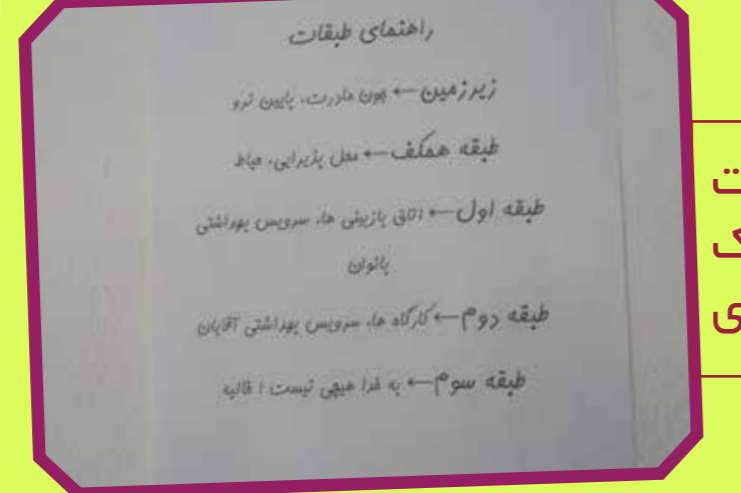 راهنمای طبقات
زیرزمین ← جون مادرت، پایین نرو
طبقه همکف ← محل پذیرایی، حیاط
طبقه اول ← اتاق بازبینی ها، سرویس بهداشتی
بانوان
طبقه دوم ← کارگاه ها، سرویس بهداشتی آقایان
طبقه سوم ← به خدا هیچی نیست ! خالیه
ت
ک
ی